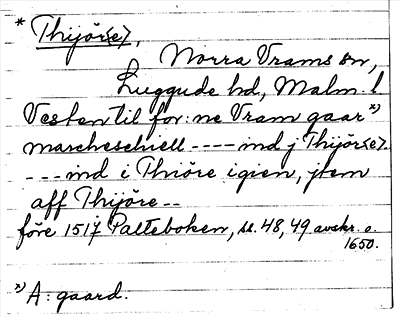 * Thijör<e>,
Norra Vrams sn,
Luggude hd, Malm. l
Vesten til for:ne Vram gaar x)
marcheschiell ---- md j Thijör<e>
--- ind i Thiöre igien, jtem
aff Thijöre --
före 1517 Palteboken, s. 48, 49 avskr. o.
1650.
x) A: gaard.